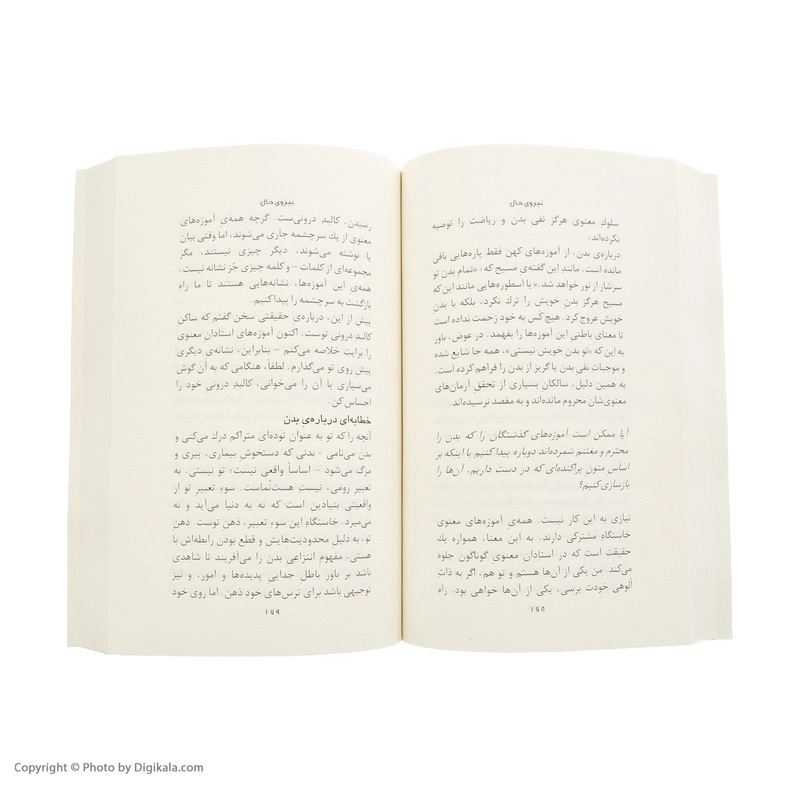 نیروی حال
سلوك معنوی هرگز نفی بدن و ریاضت را توصیه
نکرده‌اند.
درباره‌ی بدن، از آموزه‌های کهن فقط پاره‌هایی باقی
مانده است. مانندِ این گفته‌ی مسیح که: «تمام بدن تو
سرشار از نور خواهد شد.» یا اسطوره‌هایی مانند این که
مسیح هرگز بدن خویش را ترك نکرد، بلکه با بدن
خویش عروج کرد. هیچ‌کَس به خود زحمت نداده است
تا معنای باطنی این آموزه‌ها را بفهمد. در عوض، باور
به این که «تو بدن خویش نیستی»، همه جا شایع شده
و موجبات نفی بدن یا گریز از بدن را فراهم کرده است.
به همین دلیل، سالکان بسیاری از تحققِ آرمان‌های
معنوی‌شان محروم مانده‌اند و به مقصد نرسیده‌اند.
آیا ممکن است آموزه‌های گذشتگان را که بدن را
محترم و مغتنم شمرده‌اند دوباره پیدا کنیم یا اینکه بر
اساس متون پراکنده‌ای که در دست داریم، آن‌ها را
بازسازی کنیم؟
نیازی به این کار نیست. همه‌ی آموزه‌های معنوی
خاستگاه مشترکی دارند. به این معنا، همواره یك
حقیقت است که در استادان معنوی گوناگون جلوه
می‌کند. من یکی از آن‌ها هستم و تو هم، اگر به ذاتِ
اُلوهی خودت برسی، یکی از آن‌ها خواهی بود. راهِ
۱۷۸
نیروی حال
رسیدن، کالبدِ درونی‌ست. گرچه همه‌ی آموزه‌های
معنوی از یك سرچشمه جاری می‌شوند، اما وقتی بیان
یا نوشته می‌شوند، دیگر چیزی نیستند، مگر
مجموعه‌ای از کلمات – و کلمه چیزی جُز نشانه نیست.
همه‌ی این آموزه‌ها، نشانه‌هایی هستند تا ما راهِ
بازگشت به سرچشمه را پیدا کنیم.
پیش از این، درباره‌ی حقیقتی سخن گفتم که ساکن
کالبدِ درونی توست. اکنون آموزه‌های استادان معنوی
را برایت خلاصه می‌کنم – بنابراین، نشانه‌ی دیگری
پیش روی تو می‌گذارم. لطفاً، هنگامی که به آن گوش
می‌سپاری یا آن را می‌خوانی، کالبدِ درونی خود را
احساس کن.
خطابه‌ای درباره‌ی بدن
آنچه را که تو به عنوان توده‌ای متراکم درك می‌کنی و
بدن می‌نامی - بدنی که دستخوش بیماری، پیری و
مرگ می‌شود – اساساً واقعی نیست؛ تو نیستی. به
تعبیر رومی، نیستِ هست‌نُماست. سوءِ تعبیر تو از
واقعیتی بنیادین است که نه به دنیا می‌آید و نه
می‌میرد. خاستگاه این سوءِ تعبیر، ذهن توست. ذهن
تو، به دلیل محدودیت‌هایش و قطع بودن رابطه‌اش با
هستی، مفهومِ انتزاعی بدن را می‌آفریند تا شاهدی
باشد بر باور باطل جدایی پدیده‌ها و امور، و نیز
توجیهی باشد برای ترس‌های خودِ ذهن. اما روی خود
۱۷۹
Copyright © Photo by Digikala.com